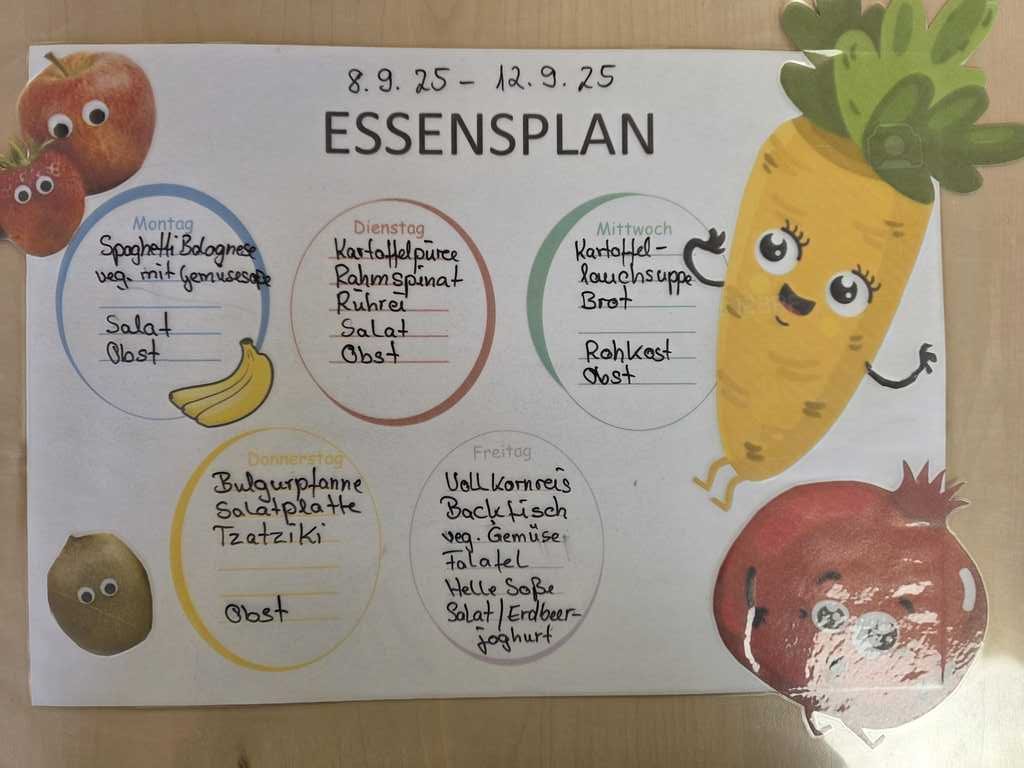 8.9.25 - 12.9.25
ESSENSPLAN
Montag
Spaghetti Bolognese
veg. mit Gemüsesoße
Salat
Obst
Dienstag
Kartoffelpüree
Rahmspinat
Rührei
Salat
Obst
Mittwoch
Kartoffel-
lauchsuppe
Brot
Rohkost
Obst
Donnerstag
Bulgurpfanne
Salatplatte
Tzatziki
Obst
Freitag
Vollkornreis
Backfisch
veg. Gemüse
Falafel
Helle Soße
Salat/Erdbeer-
joghurt